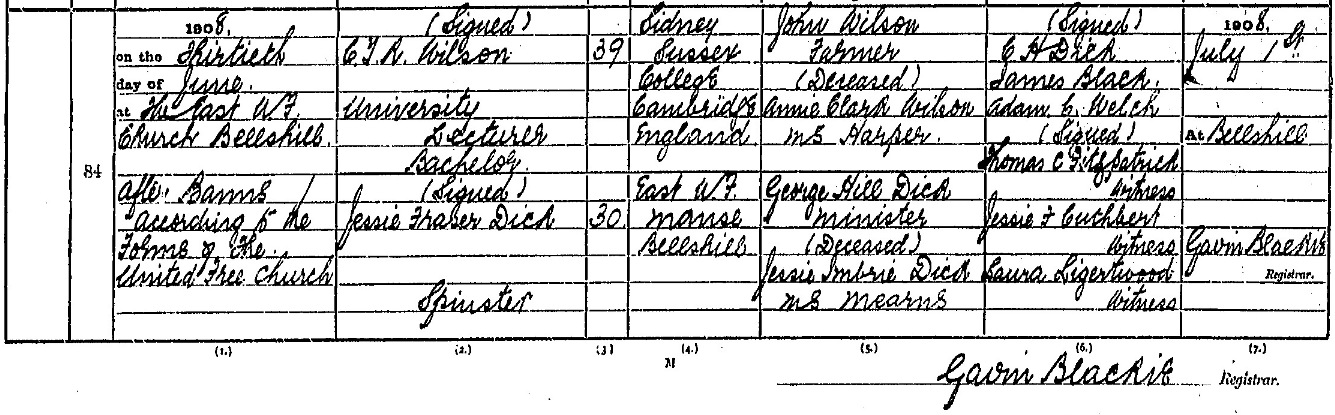 1908,
on the Thirtieth
day of June
at The East U.F.
Church Bellshill.
84
After Banns
According to the
Forms of the
United Free Church
(Signed)
C.T.R. Wilson
University
Lecturer
Bachelor
(Signed)
Jessie Fraser Dick
Spinster
39
30
Sidney
Sussex
College
Cambridge
England
East U.F.
Manse
Bellshill
John Wilson
Farmer
(Deceased)
Annie Clark Wilson
MS Harper.
George Hill Dick
Minister
(Deceased)
Jessie Imbrie Dick
MS Mearns
(Signed)
C H Dick
James Black.
Adam C. Welch
(Signed)
Thomas C Fitzpatrick
Witness
Jessie F Cuthbert
Witness
Laura Ligertwood
Witness
1908,
July 1st
At Bellshill
Gavin Blackie
Registrar.
(1.) (2.) (3) (4.) (5.) (6.) (7.)
M
Gavin Blackie Registrar.